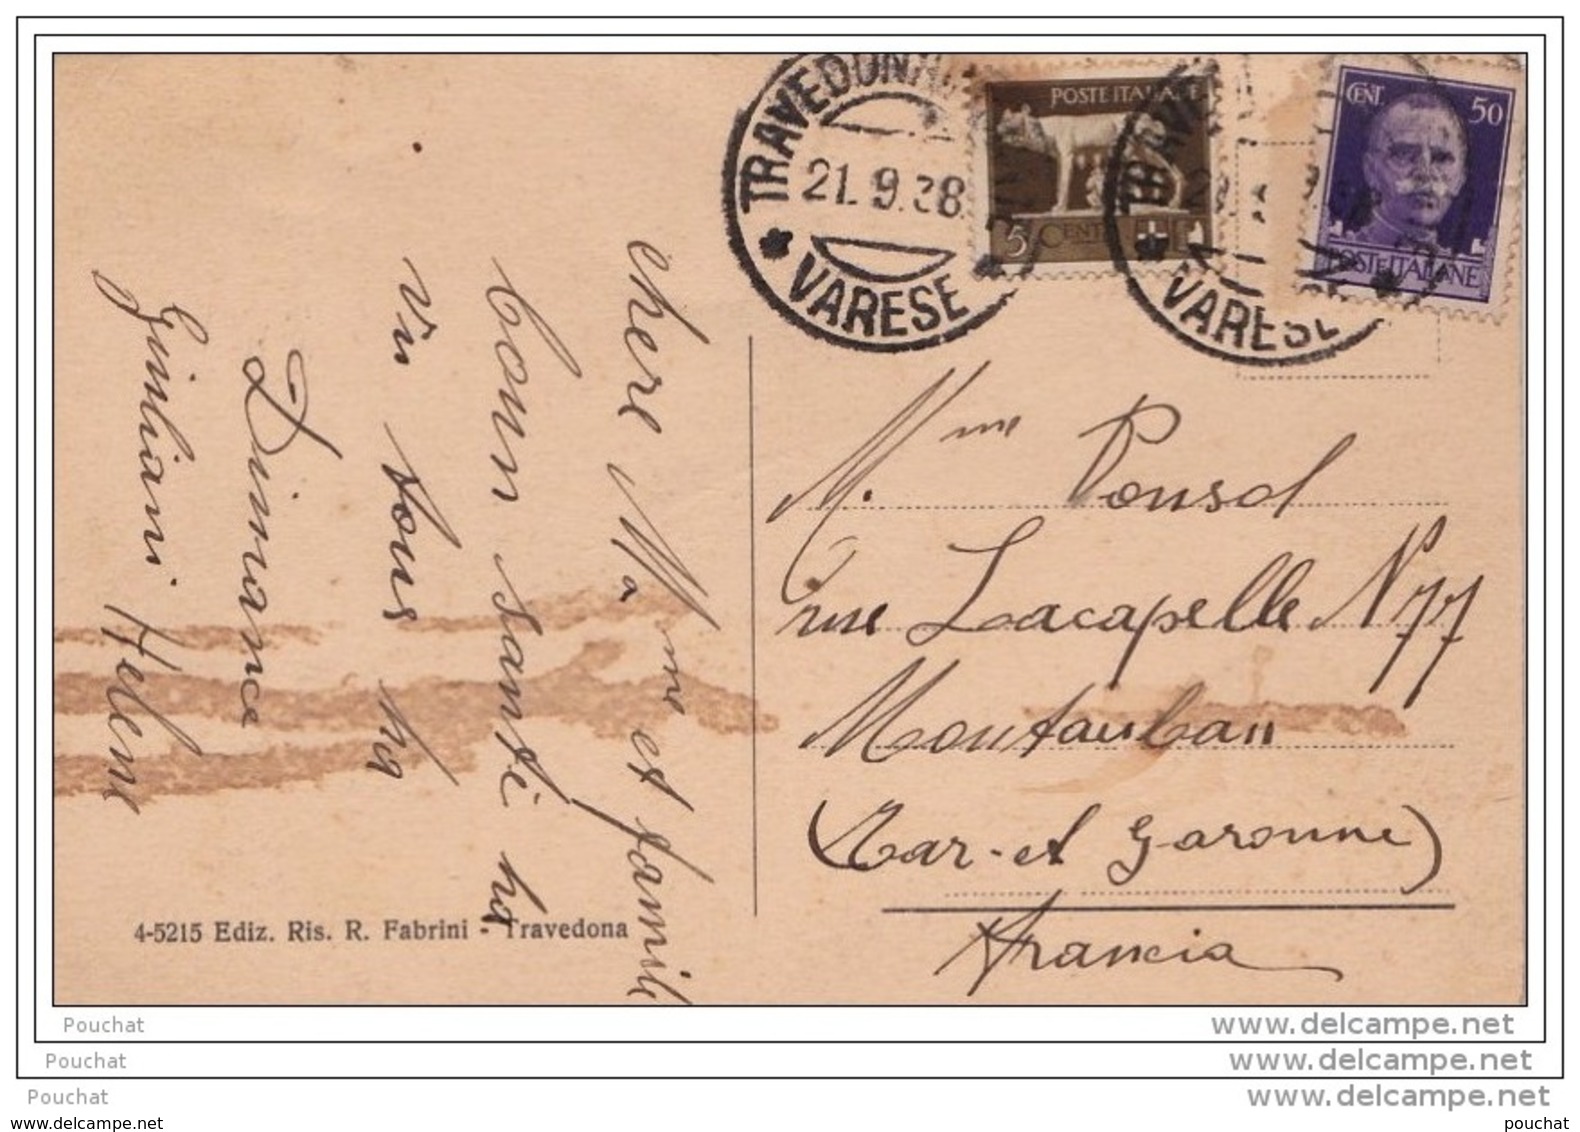 TRAVEDONA
21.9.38
VARESE
POSTE ITALIANE
5 CENT
CENT. 50
POSTE ITALIANE
VARESE
chere Mᵃ ᵐᵐᵉ et famile
Conn santé ha
Vu tous ha
Dimance
Giuliani Helene
Mme Ponsol
rue Lacapelle N 77
Montauban
(Tar-et Garonne)
Francia
4-5215 Ediz. Ris. R. Fabrini - Travedona
Pouchat
www.delcampe.net
Pouchat
www.delcampe.net
Pouchat
www.delcampe.net
www.delcampe.net
pouchat